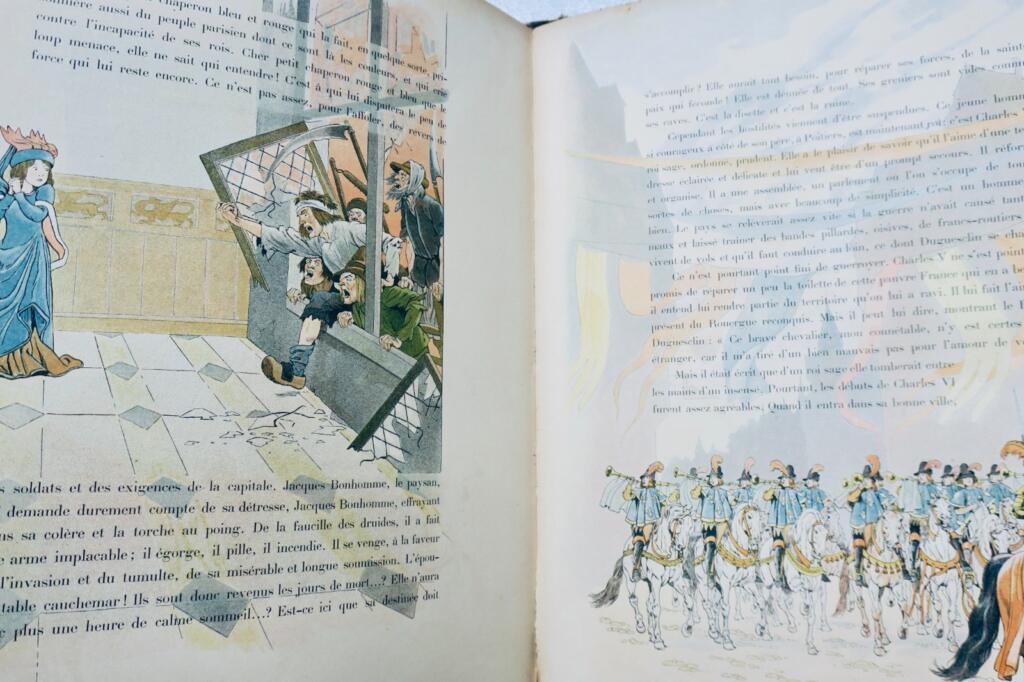 chaperon bleu et rouge qui la fait, en quelque sorte, pri-
sonnière aussi du peuple parisien dont ce sont là les couleurs, et qui crie
contre l'incapacité de ses rois. Cher petit chaperon rouge et bleu que le
loup menace, elle ne sait qui entendre! C'est à qui lui disputera le peu de
force qui lui reste encore. Ce n'est pas assez, pour l'affoler, des revers de
s soldats et des exigences de la capitale. Jacques Bonhomme, le paysan,
demande durement compte de sa détresse, Jacques Bonhomme, effrayant
us sa colère et la torche au poing. De la faucille des druides, il a fait
e arme implacable; il égorge, il pille, il incendie. Il se venge, à la faveur
l'invasion et du tumulte, de sa misérable et longue soumission. L'épou-
table cauchemar! Ils sont donc revenus les jours de mort...? Elle n'aura
plus une heure de calme sommeil...? Est-ce ici que sa destinée doit
s'accomplir? Elle aurait tant besoin, pour réparer ses forces, de la sainte
paix qui féconde! Elle est dénuée de tout. Ses greniers sont vides comme
ses caves. C'est la disette et c'est la ruine.
Cependant les hostilités viennent d'être suspendues. Ce jeune homme
si courageux à côté de son père, à Poitiers, est maintenant roi; c'est Charles
roi sage, ordonné, prudent. Elle a le plaisir de savoir qu'il l'aime d'une ten
dresse éclairée et délicate et lui veut être d'un prompt secours. Il réfor
et organise. Il a une assemblée, un parlement où l'on s'occupe de tou
sortes de choses, mais avec beaucoup de simplicité. C'est un homme
bien. Le pays se relèverait assez vite si la guerre n'avait causé tant
maux et laissé traîner des bandes pillardes, oisives, de francs-routiers
vivent de vols et qu'il faut conduire au loin, ce dont Duguesclin se cha
Ce n'est pourtant point fini de guerroyer. Charles V ne s'est point
promis de réparer un peu la toilette de cette pauvre France qui en a bo
il entend lui rendre partie du territoire qu'on lui a ravi. Il lui fait l'ai
présent du Rouergue reconquis. Mais il peut lui dire, montrant le
Duguesclin: « Ce brave chevalier, mon connétable, n'y est certes
étranger, car il m'a tiré d'un bien mauvais pas pour l'amour de vo
Mais il était écrit que d'un roi sage elle tomberait entre
les mains d'un insensé. Pourtant, les débuts de Charles VI
furent assez agréables. Quand il entra dans sa bonne ville,